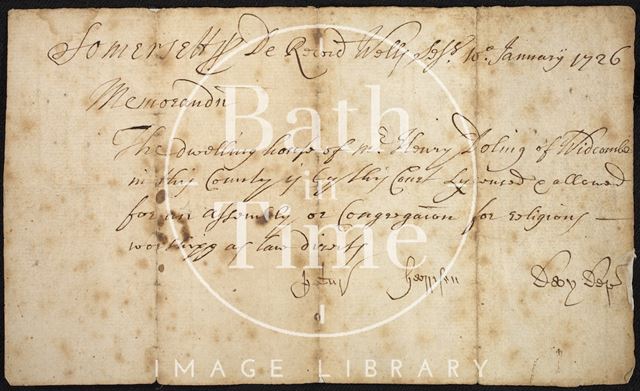 Somersetts. De Record Wells Sess. 10o. January 1726
Memorandm
The dwelling house of Mr. Henry Doling of Widcombe
in this County is by this Court Lycensed & allowed
for an Assembly or Congregacon for religious
worshipp as law directs
Bath
in
Time
IMAGE LIBRARY